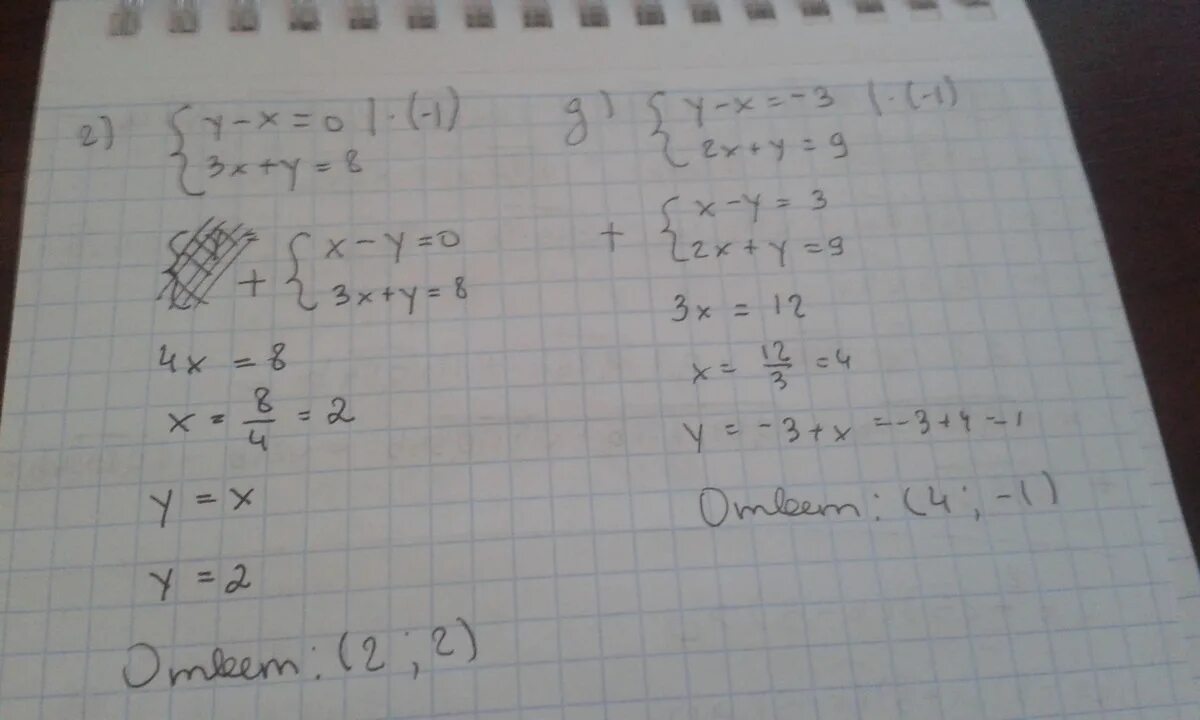 г) { y-x=0 |·(-1)
3x+y=8
+ { x-y=0
3x+y=8
4x = 8
x = 8/4 = 2
y = x
y = 2
Ответ: (2 ; 2)
д) { y-x=-3 |·(-1)
2x+y=9
+ { x-y=3
2x+y=9
3x = 12
x = 12/3 = 4
y = -3+x = -3+4 = 1
Ответ: (4 ; -1)